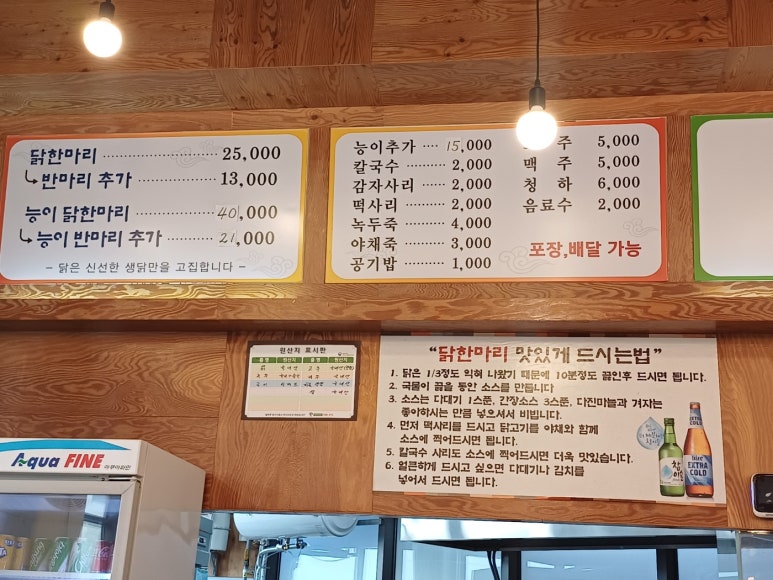 닭한마리 ························ 25,000
↳ 반마리 추가 ················ 13,000
능이 닭한마리 ················ 40,000
↳ 능이 반마리 추가 ·········· 21,000
– 닭은 신선한 생닭만을 고집합니다 –
능이추가 ···· 15,000
칼국수 ········ 2,000
감자사리 ······ 2,000
떡사리 ········ 2,000
녹두죽 ········ 4,000
야채죽 ········ 3,000
공기밥 ········ 1,000
주 5,000
맥 주 5,000
청 하 6,000
음료수 2,000
포장,배달 가능
원산지 표시판
품 명 원산지 품 명 원산지
"닭한마리 맛있게 드시는법"
1. 닭은 1/3정도 익혀 나왔기 때문에 10분정도 끓인후 드시면 됩니다.
2. 국물이 끓을 동안 소스를 만듭니다
3. 소스는 다대기 1스푼, 간장소스 3스푼, 다진마늘과 겨자는
좋아하시는 만큼 넣으셔서 비빕니다.
4. 먼저 떡사리를 드시고 닭고기를 야채와 함께
소스에 찍어드시면 됩니다.
5. 칼국수 사리도 소스에 찍어드시면 더욱 맛있습니다.
6. 얼큰하게 드시고 싶으면 다대기나 김치를
넣어서 드시면 됩니다.
참이슬
EXTRA
COLD
Aqua FINE 아쿠아화인